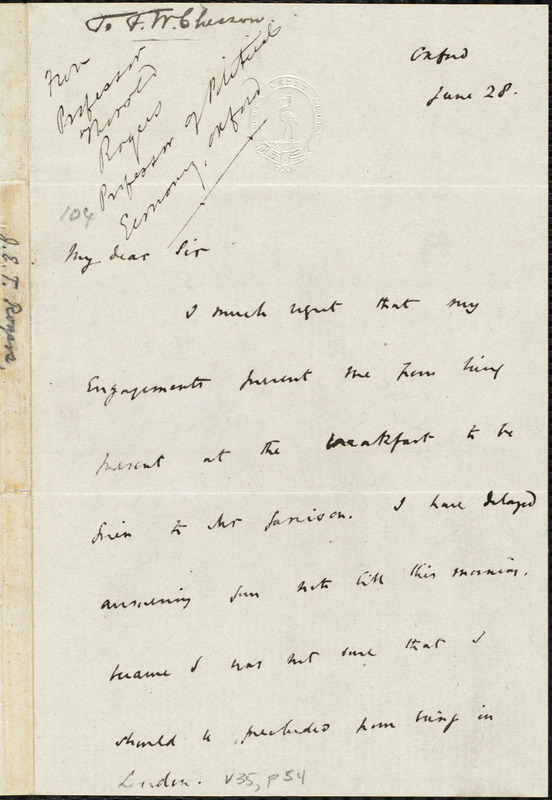 To F. W. Chesson.
From
Professor
Thorold
Rogers
Professor of Political
Economy, Oxford
Oxford
June 28.
104
My dear Sir
I much regret that my
Engagements prevent me from being
present at the breakfast to be
given to Mr Garrison. I have delayed
answering your note till this morning,
because I was not sure that I
should be precluded from being in
London.
V35, p54
J. E. T. Rogers,